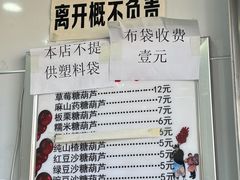 离开概不负责
本店不提
供塑料袋
布袋收费
壹元
草莓糖葫芦 12元
麻山药糖葫芦 7元
板栗糖葫芦 7元
糯米糖葫芦 6元
纯山楂糖葫芦 5元
红豆沙糖葫芦 5元
绿豆沙糖葫芦 5元